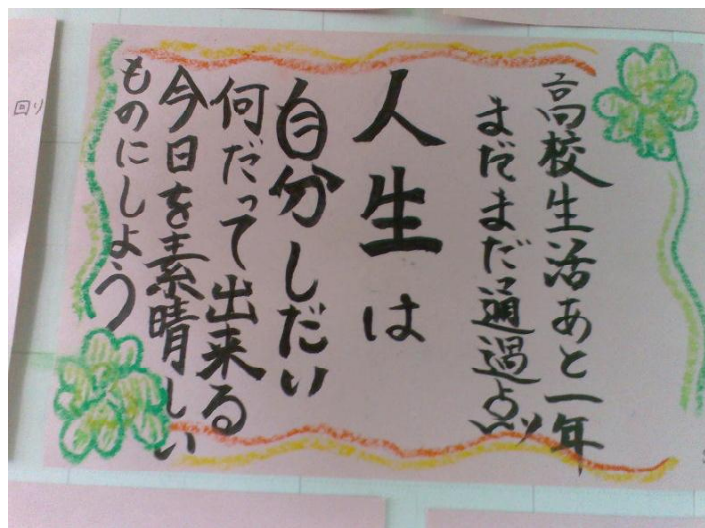 高校生活あと一年
まだまだ通過点!!
人生は
自分しだい
何だって出来る
今日を素晴しい
ものにしよう
回り